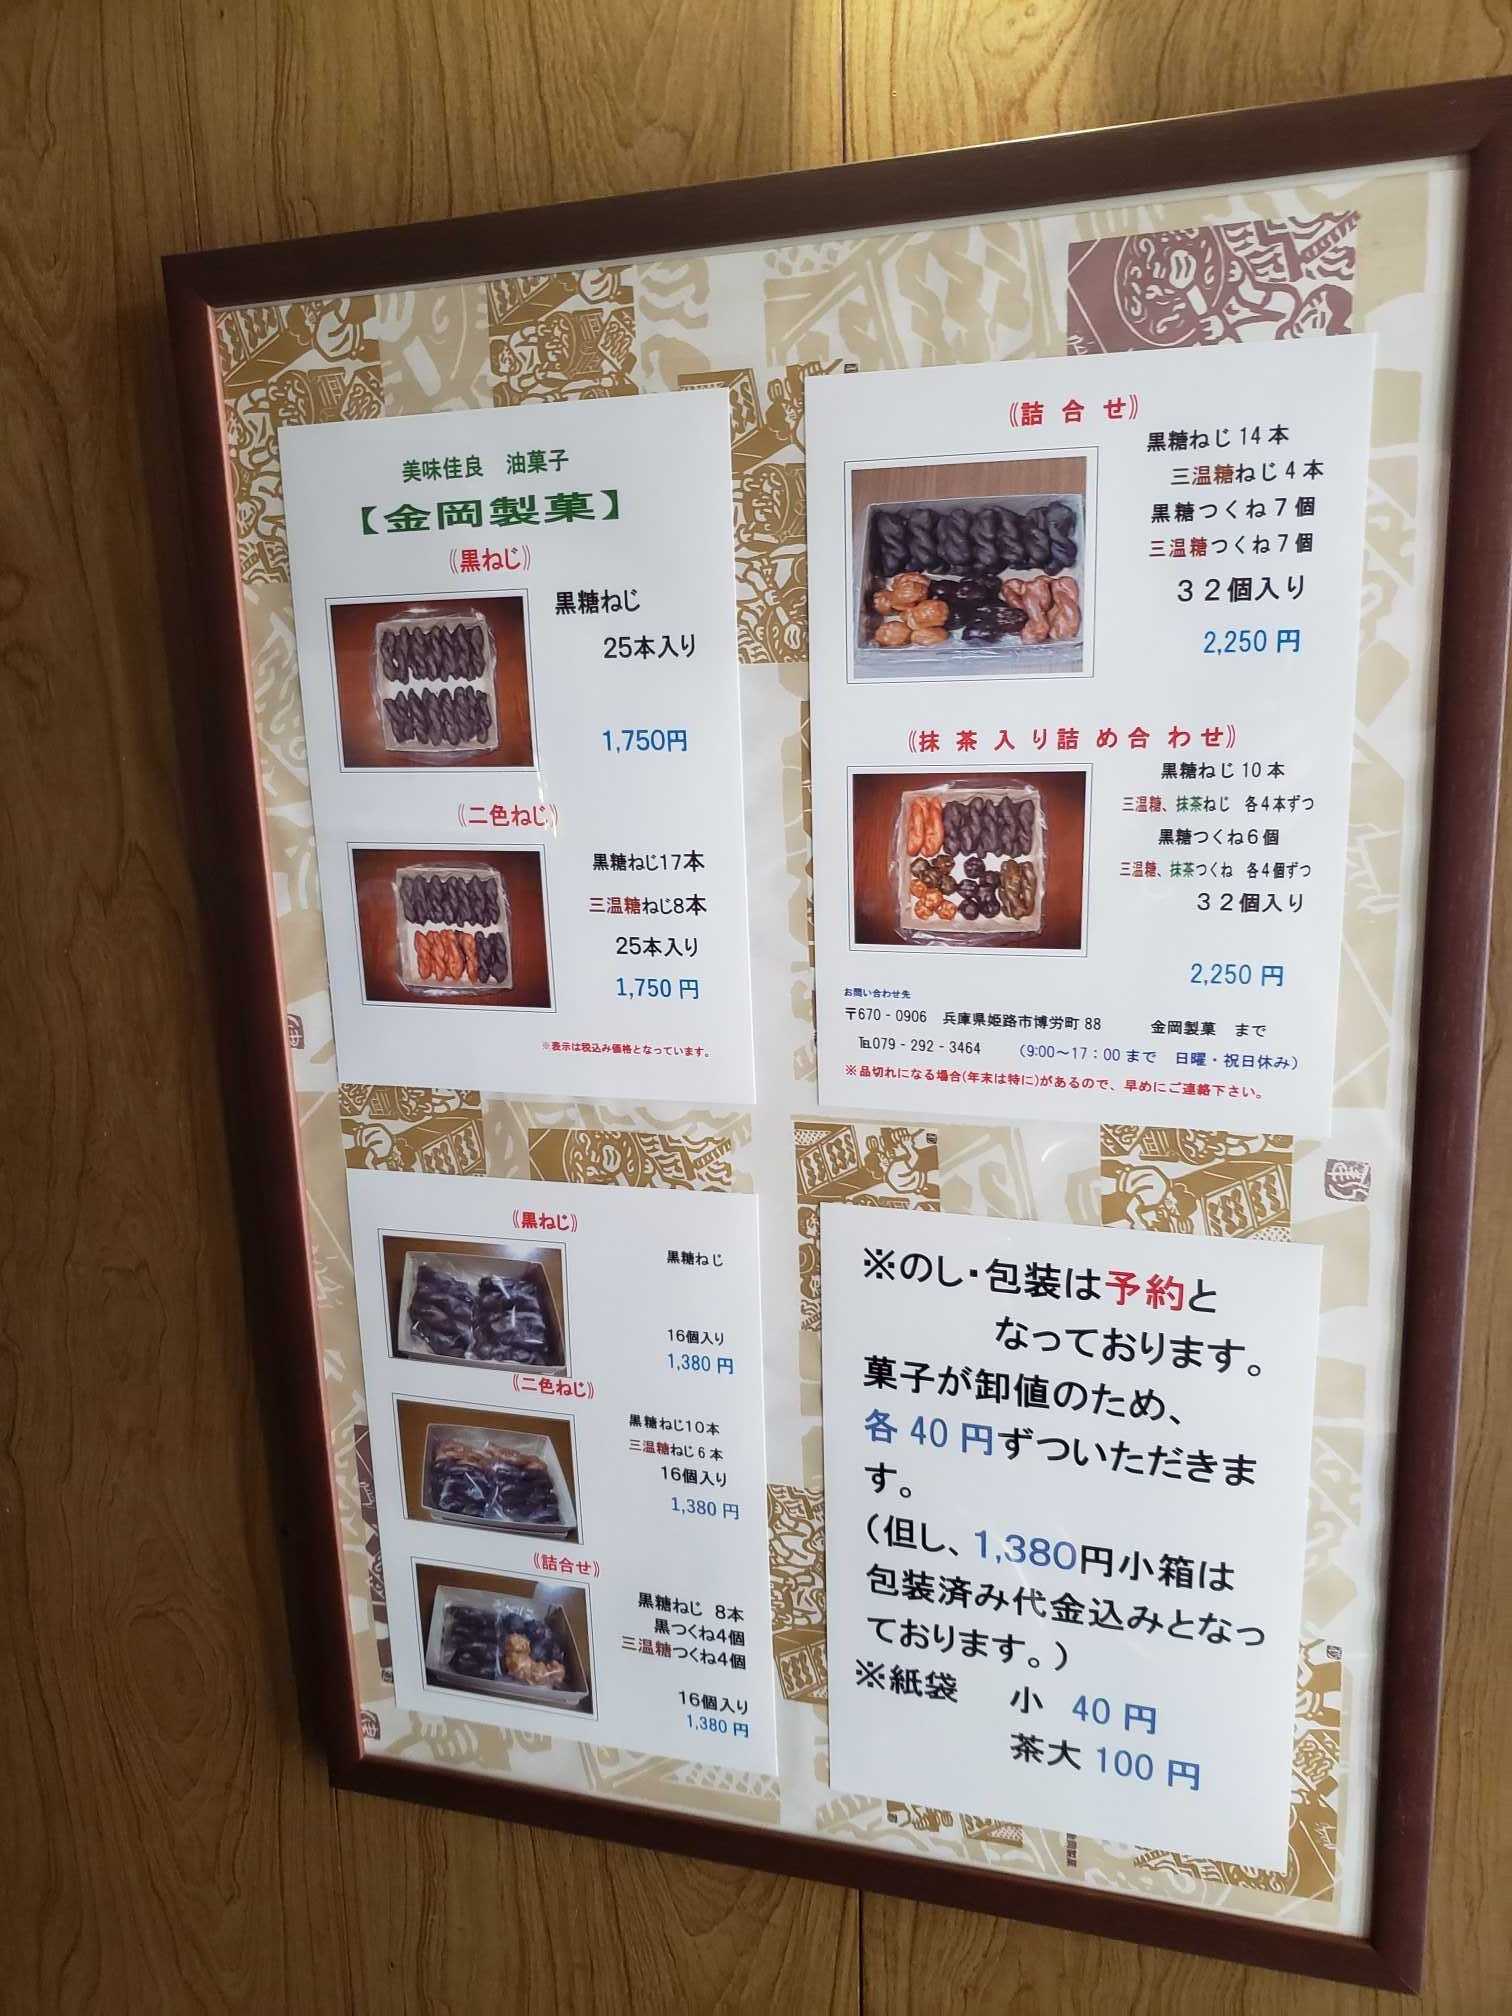 美味佳良　油菓子
【金岡製菓】
《黒ねじ》
黒糖ねじ
25本入り
1,750円
《二色ねじ》
黒糖ねじ17本
三温糖ねじ8本
25本入り
1,750 円
※表示は税込み価格となっています。
《詰 合 せ》
黒糖ねじ 14 本
三温糖ねじ 4 本
黒糖つくね 7 個
三温糖つくね 7 個
３２個入り
2,250 円
《抹 茶 入 り 詰 め 合 わ せ》
黒糖ねじ 10 本
三温糖、抹茶ねじ　各４本ずつ
黒糖つくね６個
三温糖、抹茶つくね　各４個ずつ
３２個入り
2,250 円
お問い合わせ先
〒670‐0906　兵庫県姫路市博労町 88　　金岡製菓　まで
℡079‐292‐3464　（9:00～17：00 まで　日曜・祝日休み）
※品切れになる場合(年末は特に)があるので、早めにご連絡下さい。
《黒ねじ》
黒糖ねじ
16個入り
1,380 円
《二色ねじ》
黒糖ねじ１０本
三温糖ねじ６本
16個入り
1,380 円
《詰合せ》
黒糖ねじ 8本
黒つくね4個
三温糖つくね4個
16個入り
1,380 円
※のし・包装は予約と
なっております。
菓子が卸値のため、
各 40 円ずついただきま
す。
（但し、1,380円小箱は
包装済み代金込みとなっ
ております。）
※紙袋　小　40 円
茶大 100 円